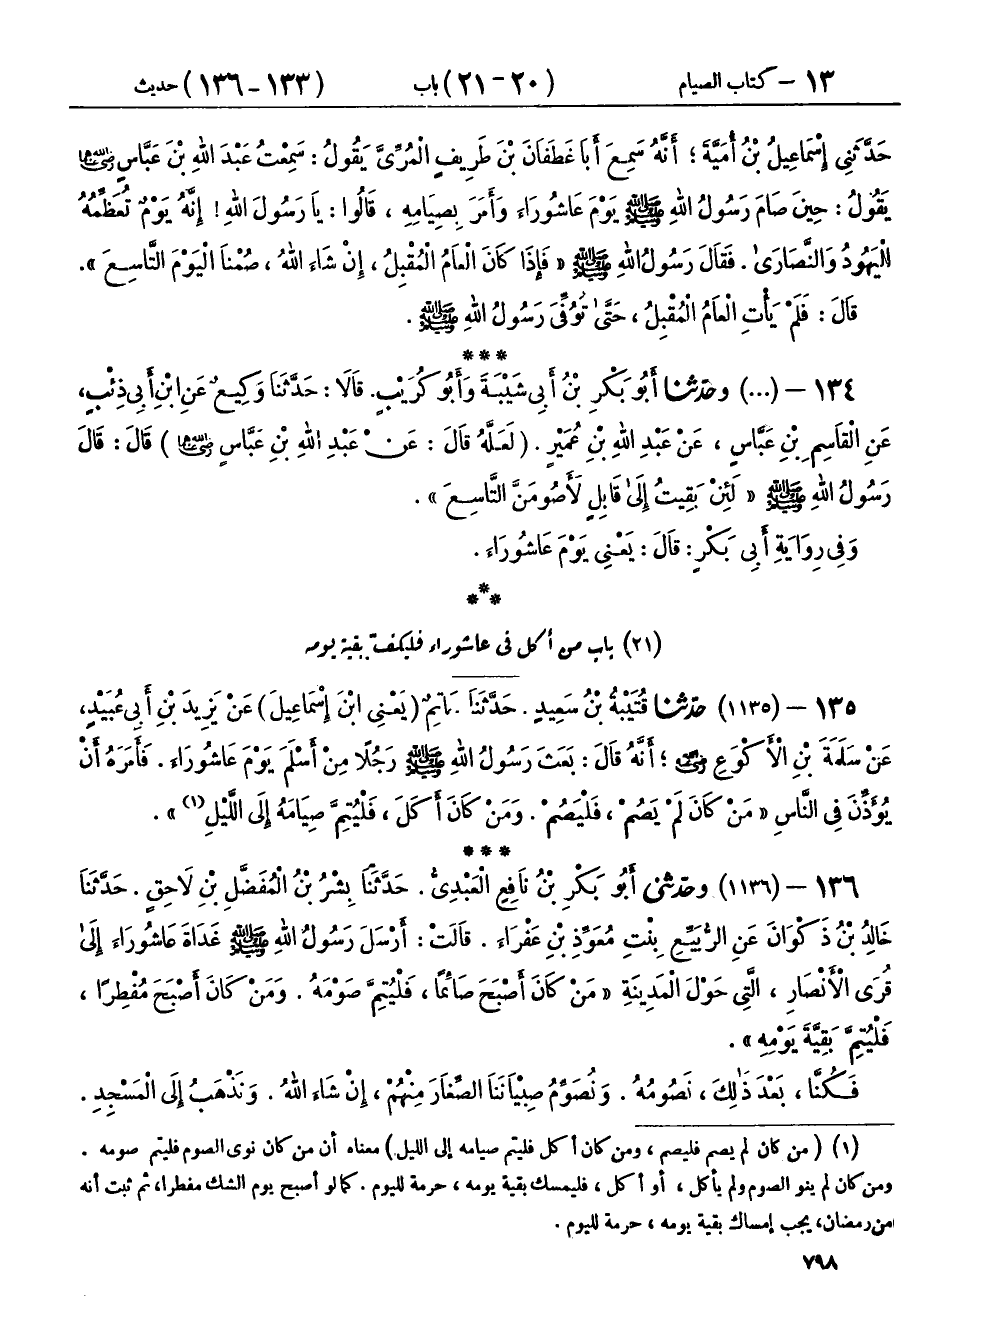 ١٣ – كتاب الصيام (٢٠ – ٢١) باب (١٣٣ – ١٣٦) حديث
حَدَّثَنِي إِسْمَاعِيلُ بْنُ أُمَيَّةَ ؛ أَنَّهُ سَمِعَ أَبَا غَطَفَانَ بْنَ طَرِيفٍ الْمُرِّىَّ يَقُولُ : سَمِعْتُ عَبْدَ اللهِ بْنَ عَبَّاسٍ رضي الله عنهما
يَقُولُ : حِينَ صَامَ رَسُولُ اللهِ ﷺ يَوْمَ عَاشُورَاءَ وَأَمَرَ بِصِيَامِهِ ، قَالُوا : يَا رَسُولَ اللهِ ! إِنَّهُ يَوْمٌ تُعَظِّمُهُ
الْيَهُودُ وَالنَّصَارَىٰ . فَقَالَ رَسُولُ اللهِ ﷺ « فَإِذَا كَانَ الْعَامُ الْمُقْبِلُ ، إِنْ شَاءَ اللهُ ، صُمْنَا الْيَوْمَ التَّاسِعَ ».
قَالَ : فَلَمْ يَأْتِ الْعَامُ الْمُقْبِلُ ، حَتَّىٰ تُوُفِّىَ رَسُولُ اللهِ ﷺ .
***
١٣٤ – (...) وحَدَّثَنَا أَبُو بَكْرِ بْنُ أَبِي شَيْبَةَ وَأَبُو كُرَيْبٍ. قَالَا : حَدَّثَنَا وَكِيعٌ عَنِ ابْنِ أَبِي ذِئْبٍ،
عَنِ الْقَاسِمِ بْنِ عَبَّاسٍ ، عَنْ عَبْدِ اللهِ بْنِ عُمَيْرٍ . ( لَعَلَّهُ قَالَ : عَنْ عَبْدِ اللهِ بْنِ عَبَّاسٍ رضي الله عنهما ) قَالَ : قَالَ
رَسُولُ اللهِ ﷺ « لَئِنْ بَقِيتُ إِلَىٰ قَابِلٍ لَأَصُومَنَّ التَّاسِعَ » .
وَفِي رِوَايَةِ أَبِي بَكْرٍ : قَالَ : يَعْنِي يَوْمَ عَاشُورَاءَ .
***
(٢١) باب من أكل في عاشوراء فليكفّ بقية يومه
١٣٥ – (١١٣٥) حَدَّثَنَا قُتَيْبَةُ بْنُ سَعِيدٍ . حَدَّثَنَا حَاتِمٌ ( يَعْنِي ابْنَ إِسْمَاعِيلَ ) عَنْ يَزِيدَ بْنِ أَبِي عُبَيْدٍ،
عَنْ سَلَمَةَ بْنِ الْأَكْوَعِ رضي الله عنه ؛ أَنَّهُ قَالَ : بَعَثَ رَسُولُ اللهِ ﷺ رَجُلًا مِنْ أَسْلَمَ يَوْمَ عَاشُورَاءَ . فَأَمَرَهُ أَنْ
يُؤَذِّنَ فِي النَّاسِ « مَنْ كَانَ لَمْ يَصُمْ ، فَلْيَصُمْ . وَمَنْ كَانَ أَكَلَ ، فَلْيُتِمَّ صِيَامَهُ إِلَى اللَّيْلِ(١) » .
***
١٣٦ – (١١٣٦) وحَدَّثَنِي أَبُو بَكْرِ بْنُ نَافِعٍ الْعَبْدِىُّ . حَدَّثَنَا بِشْرُ بْنُ الْمُفَضَّلِ بْنِ لَاحِقٍ . حَدَّثَنَا
خَالِدُ بْنُ ذَكْوَانَ عَنِ الرُّبَيِّعِ بِنْتِ مُعَوِّذِ بْنِ عَفْرَاءَ . قَالَتْ : أَرْسَلَ رَسُولُ اللهِ ﷺ غَدَاةَ عَاشُورَاءَ إِلَىٰ
قُرَى الْأَنْصَارِ ، الَّتِي حَوْلَ الْمَدِينَةِ « مَنْ كَانَ أَصْبَحَ صَائِمًا ، فَلْيُتِمَّ صَوْمَهُ . وَمَنْ كَانَ أَصْبَحَ مُفْطِرًا ،
فَلْيُتِمَّ بَقِيَّةَ يَوْمِهِ » .
فَكُنَّا ، بَعْدَ ذَٰلِكَ ، نَصُومُهُ . وَنُصَوِّمُ صِبْيَانَنَا الصِّغَارَ مِنْهُمْ ، إِنْ شَاءَ اللهُ . وَنَذْهَبُ إِلَى الْمَسْجِدِ .
(١) ( من كان لم يصم فليصم ، ومن كان أكل فليتم صيامه إلى الليل ) معناه أن من كان نوى الصوم فليتم صومه .
ومن كان لم ينو الصوم ولم يأكل ، أو أكل ، فليمسك بقية يومه ، حرمة لليوم . كما لو أصبح يوم الشك مفطرا، ثم ثبت أنه
من رمضان، يجب إمساك بقية يومه ، حرمة لليوم .
٧٩٨